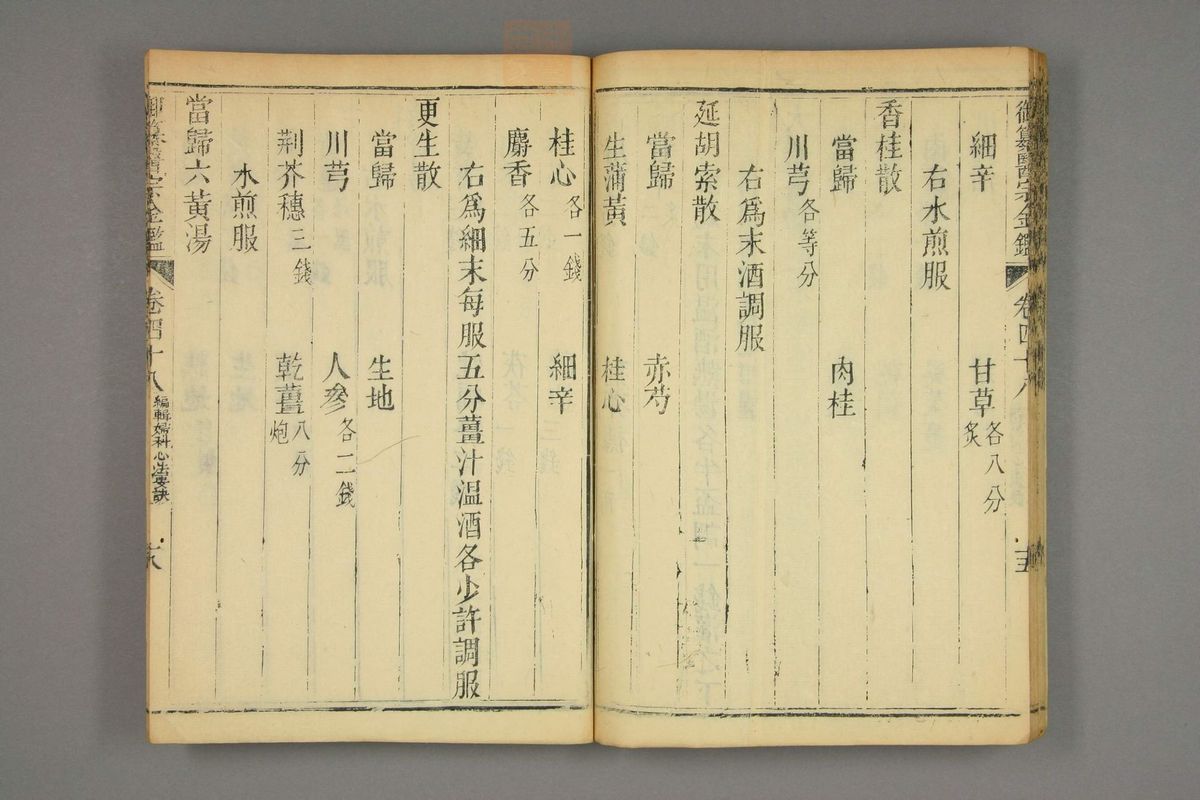 御纂醫宗金鑑 卷四十八 十五
細辛 甘草各八分炙
右水煎服
香桂散
當歸 肉桂
川芎各等分
右爲末酒調服
延胡索散
當歸 赤芍
生蒲黃 桂心
桂心各一錢 細辛
麝香各五分
右爲細末每服五分薑汁溫酒各少許調服
更生散
當歸 生地
川芎 人參各二錢
荆芥穗三錢 乾薑八分炮
水煎服
當歸六黃湯
御纂醫宗金鑑 卷四十八 編輯婦科心法要訣